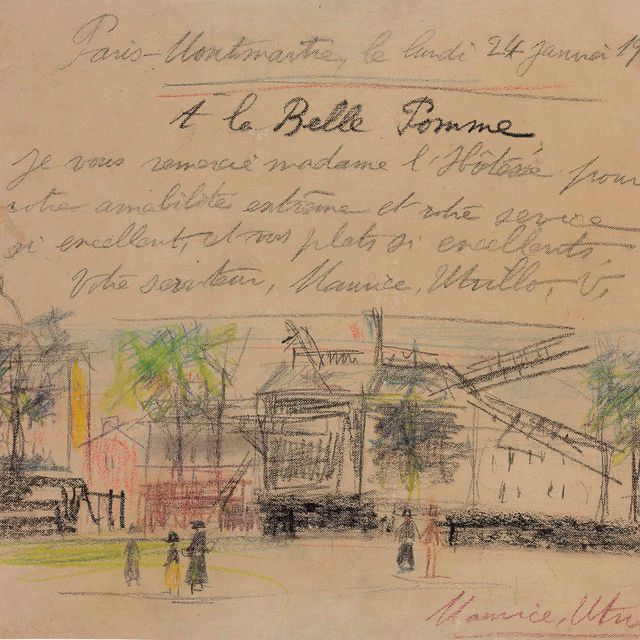 Paris-Montmartre, le lundi 24 Janvier 19
A la Belle Pomme
Je vous remercie madame l'Hôtesse pour
votre amabilité extrême et votre service
si excellent, et vos plats si excellents
Votre serviteur, Maurice, Utrillo, V,
Maurice, Utri